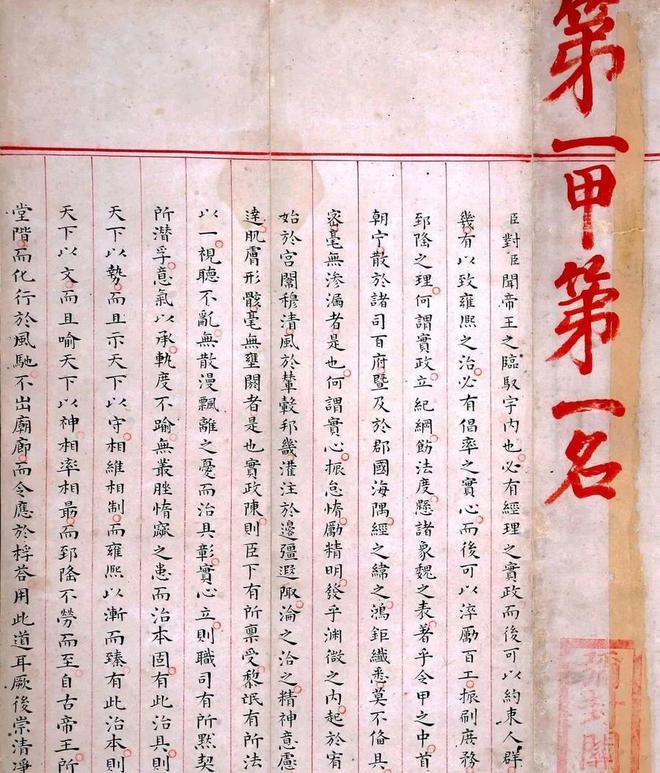 第一甲第一名
彌封關
臣對臣聞帝王之臨馭宇內也必有經理之實政而後可以約束人群
幾有以致雍熙之治必有倡率之實心而後可以淬勵百工振刷庶務
郅隆之理何謂實政立紀綱飭法度懸諸象魏之表著乎令甲之中首
朝宁散於諸司百府暨及於郡國海隅經之緯之鴻鉅纖悉莫不俻具
密毫無滲漏者是也何謂實心振怠惰勵精明發乎淵微之內起於宥
始於宮闈穆清風於輦轂邦畿灌注於邊疆遐陬淪之洽之精神意慮
達肌膚形骸毫無壅閼者是也實政陳則臣下有所禀受黎氓有所法
以一視聽不亂無散漫飄離之憂而治具彰實心立則職司有所默契
所潜孚意氣以承軌度不踰無叢脞惰窳之患而治本固有此治具則
天下以勢而且示天下以守相維相制而雍熙以漸而臻有此治本則
天下以文而且喻天下以神相率相最而郅隆不勞而至自古帝王所
堂階而化行於風馳不出廟廊而令應於桴荅用此道耳厥後崇清凈